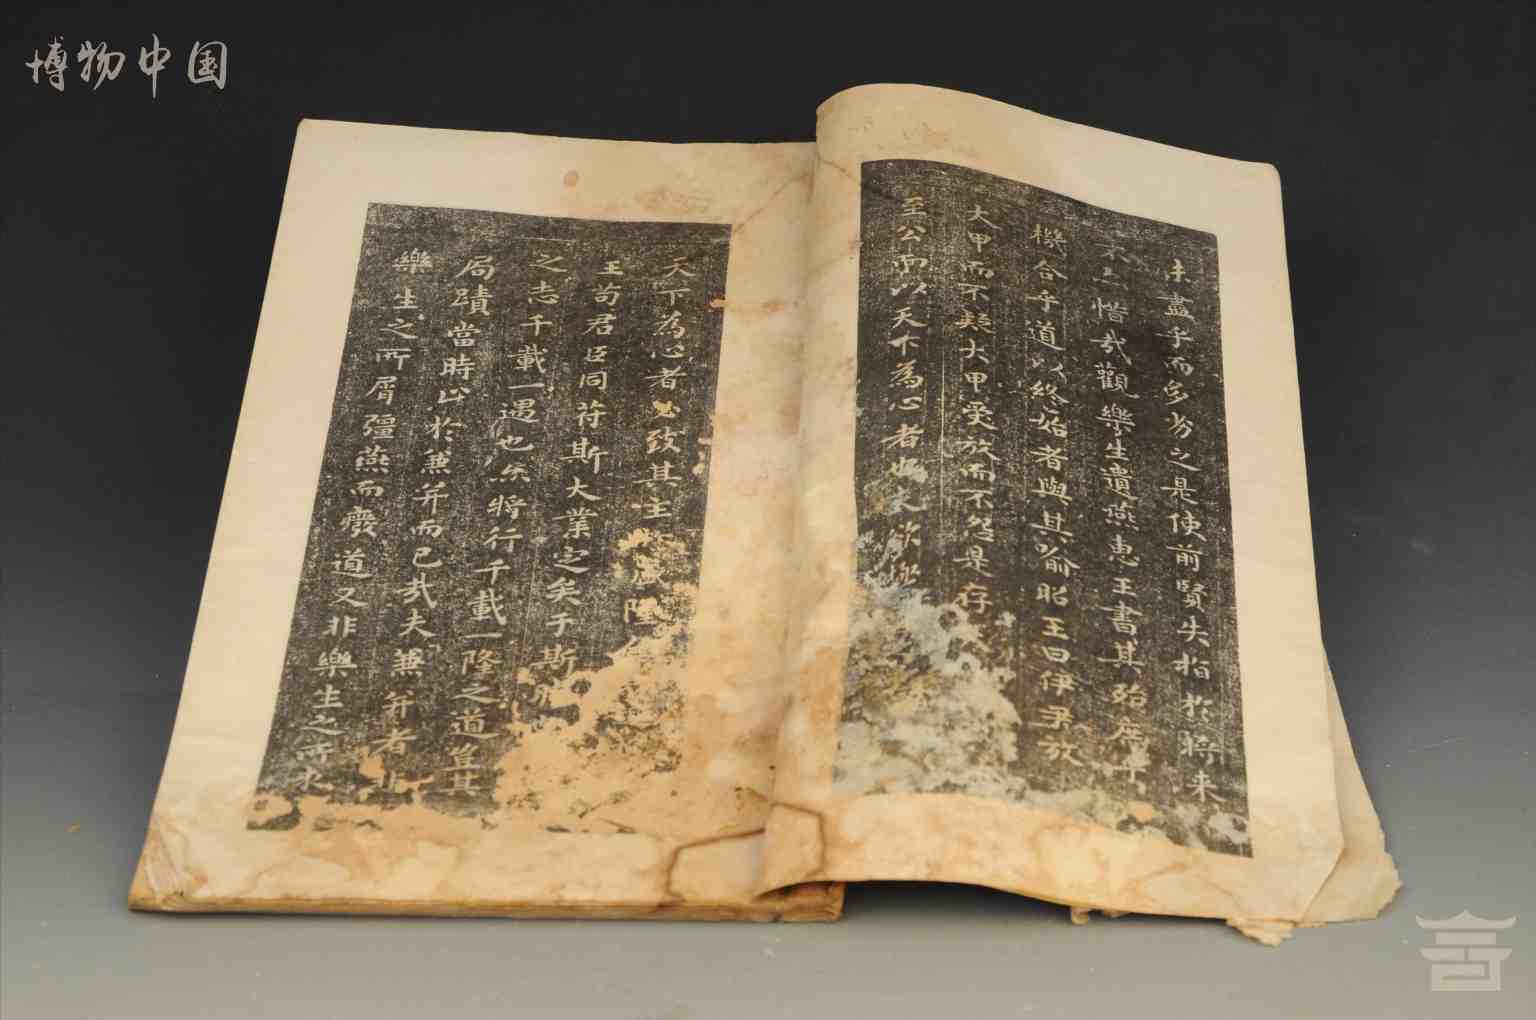 博物中国
未盡乎而多劣之是使前賢失指於將來
不亦惜哉觀樂生遺燕惠王書其殆庶乎
機合乎道以終始者與其喻昭王曰伊尹放
大甲而不疑大甲受放而不怨是存
至公而以天下為心者也夫欲極
天下為心者必致其主於盛隆
王苟君臣同符斯大業定矣于斯
之志千載一遇也亦將行千載一隆之道豈其
局蹟當時止於兼并而已哉夫兼并者非
樂生之所屑彊燕而廢道又非樂生之所求